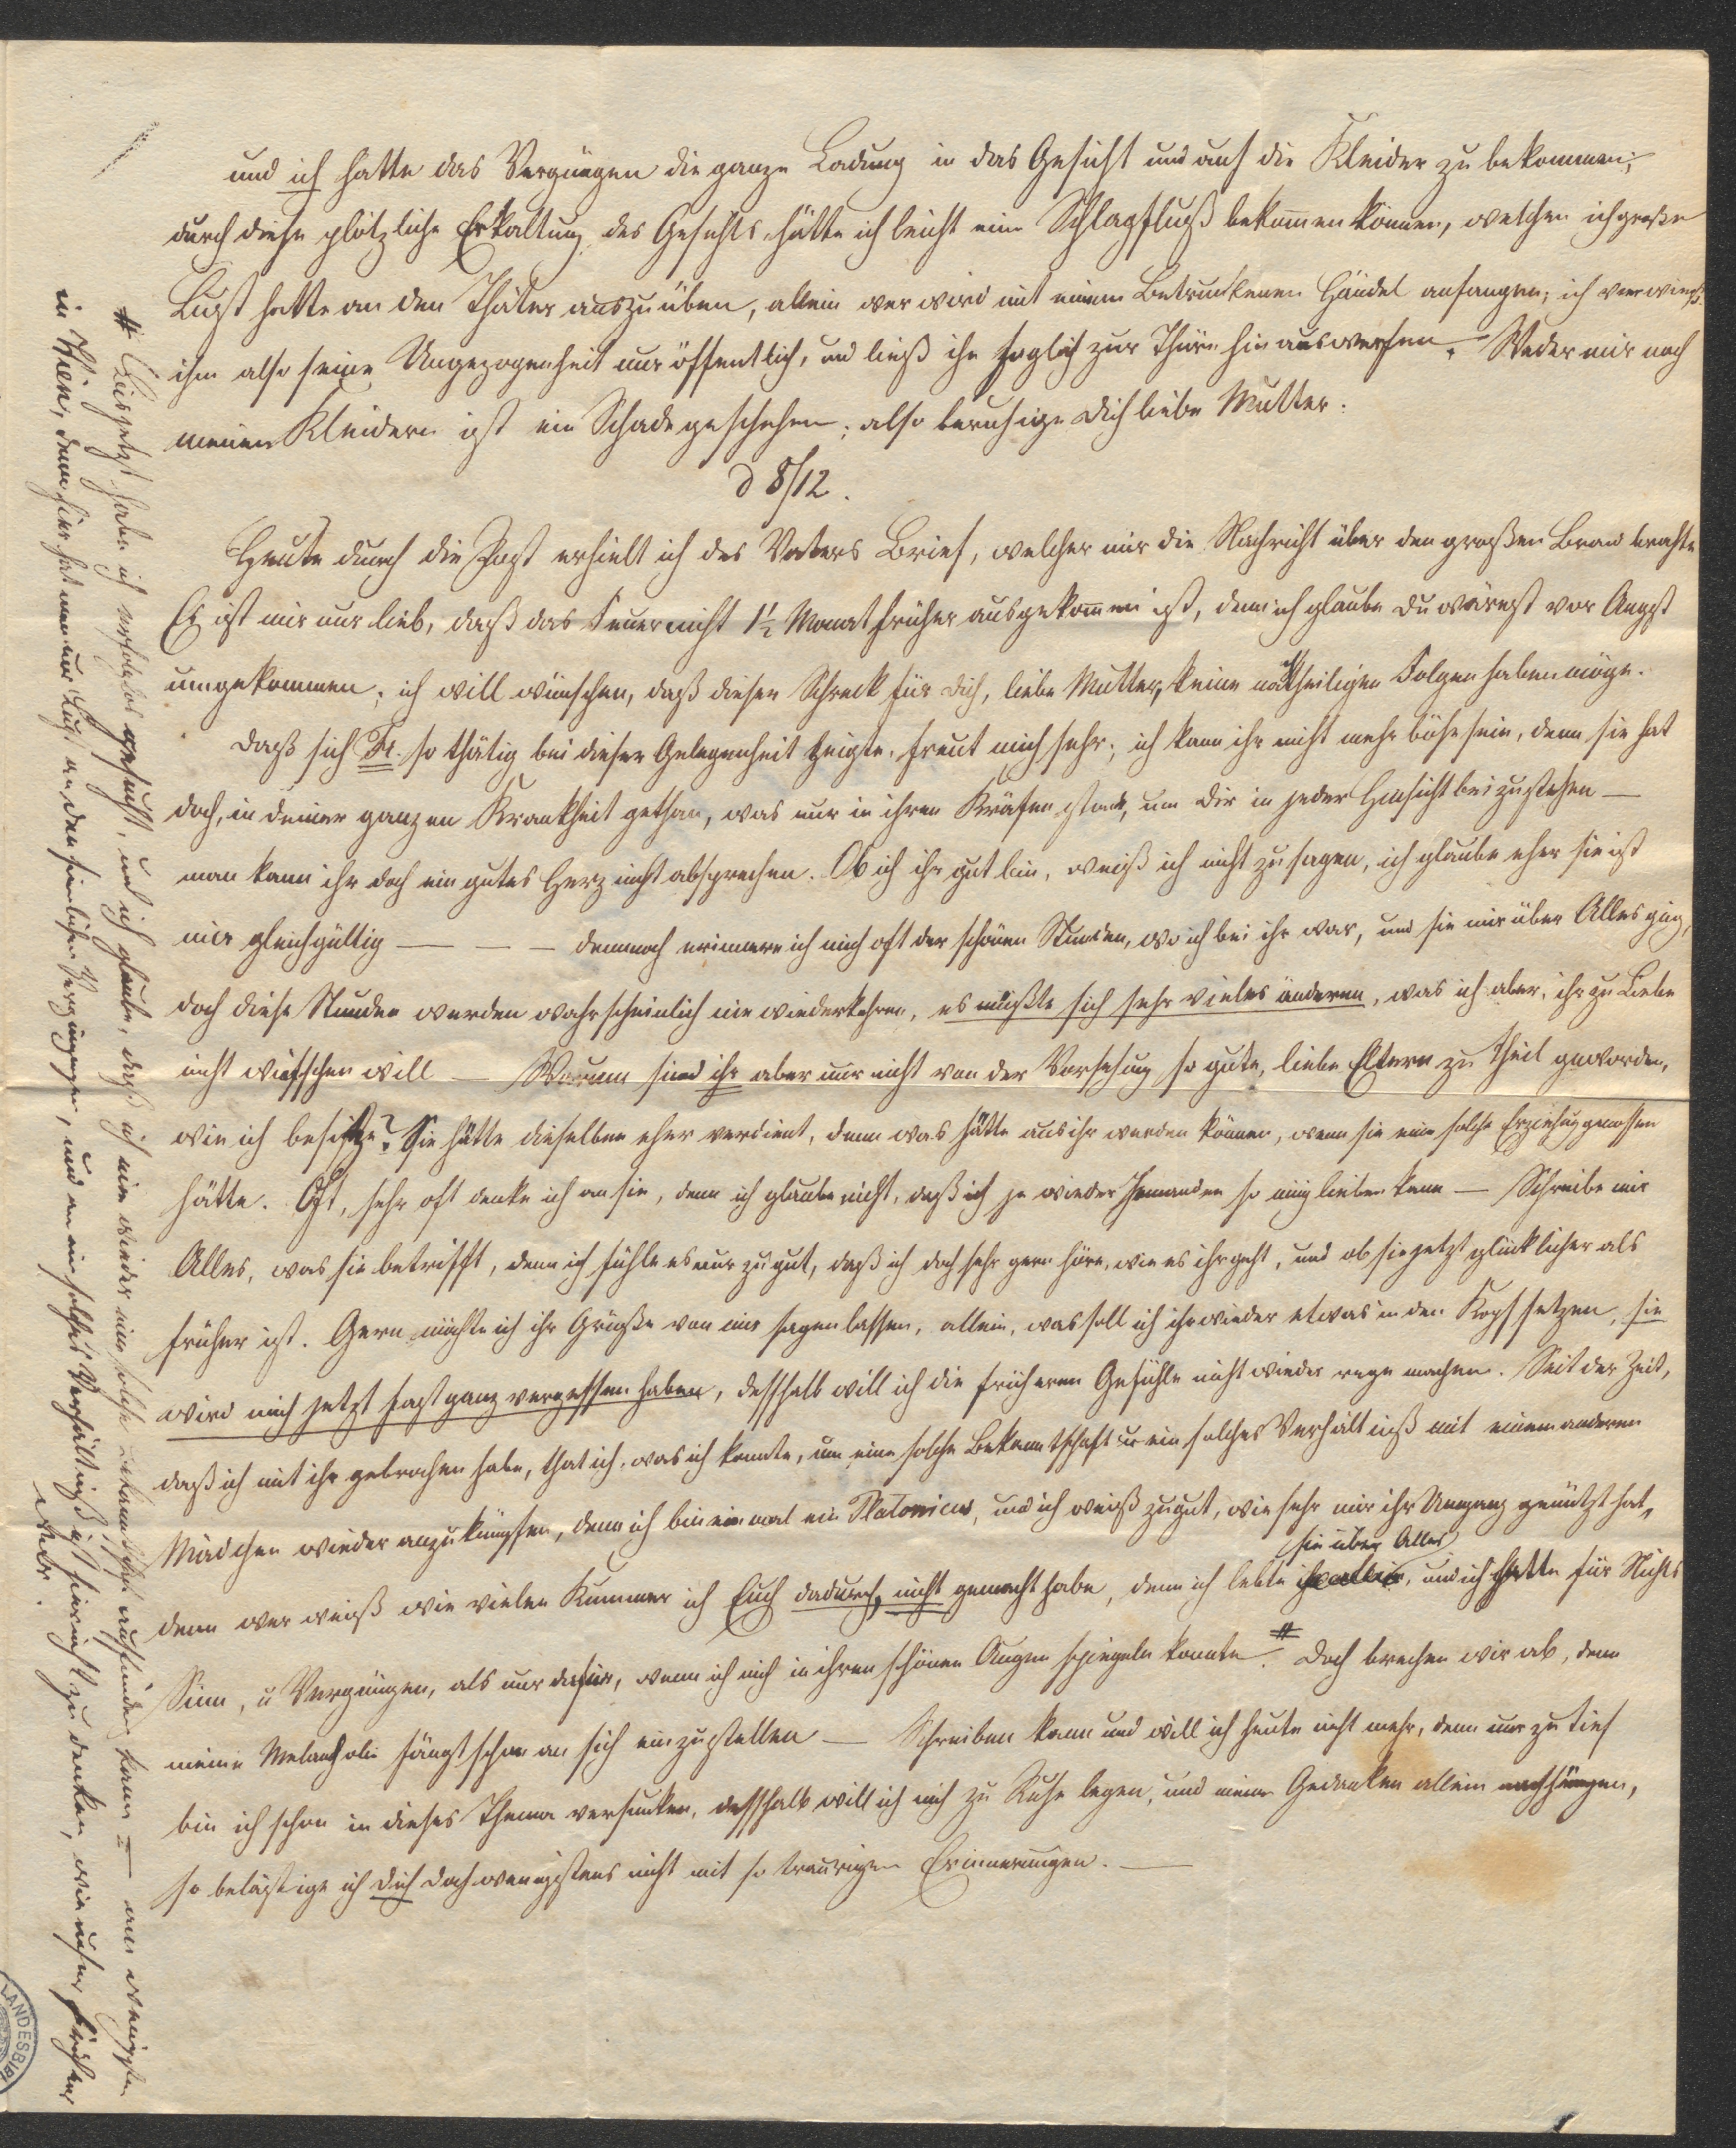 und ich hatte das Vergnügen die ganze Ladung in das Gesicht und auf die Kleider zu bekommen;
durch diese plötzliche Erkaltung des Gesichts hätte ich leicht einen Schlagfluß bekommen können, welchen ich große
Lust hatte an den Thäter auszuüben, allein wer wird mit einem Betrunkenen Händel anfangen; ich verwies
ihm also seine Ungezogenheit nur öffentlich, und ließ ihn sogleich zur Thüre hinauswerfen. Weder mir noch
meinen Kleidern ist ein Schade geschehen; also beruhige Dich liebe Mutter.
d 8/12.
Heute durch die Post erhielt ich des Vaters Brief, welcher mir die Nachricht über den großen Brand brachte
Es ist mir nur lieb, daß das Feuer nicht 1½ Monat früher ausgekommen ist, denn ich glaube Du wärest vor Angst
umgekommen; ich will wünschen, daß dieser Schreck für Dich, liebe Mutter, keine nachtheiligen Folgen haben möge.
Daß sich Fr. so thätig bei dieser Gelegenheit zeigte, freut mich sehr; ich kann ihr nicht mehr böse sein, denn sie hat
doch, in Deiner ganzen Krankheit gethan, was nur in ihren Kräften stand, um Dir in jeder Hinsicht beizustehen —
man kann ihr doch ein gutes Herz nicht absprechen. Ob ich ihr gut bin, weiß ich nicht zu sagen, ich glaube eher sie ist
mir gleichgültig — — — dennoch erinnere ich mich oft der schönen Stunden, wo ich bei ihr war, und sie mir über Alles ging,
doch diese Stunden werden wahrscheinlich nie wiederkehren, es müßte sich sehr vieles änderen, was ich aber, ihr zu Liebe
nicht wünschen will — Warum sind ihr aber nur nicht von der Vorsehung so gute, liebe Eltern zu Theil geworden,
wie ich besitze? Sie hätte dieselben eher verdient, denn was hätte aus ihr werden können, wenn sie eine solche Erziehung genossen
hätte. Oft, sehr oft denke ich an sie, denn ich glaube nicht, daß ich je wieder Jemanden so innig lieben kann — Schreibe mir
Alles, was sie betrifft, denn ich fühle es nur zu gut, daß ich doch sehr gern höre, wie es ihr geht, und ob sie jetzt glücklicher als
früher ist. Gern möchte ich ihr Grüße von mir sagen lassen, allein, was soll ich ihr wieder etwas in den Kopf setzen, sie
wird mich jetzt fast ganz vergessen haben, desshalb will ich die früheren Gefühle nicht wieder rege machen. Seit der Zeit,
daß ich mit ihr gebrochen habe, that ich, was ich konnte, um eine solche Bekanntschaft u ein solches Verhältniß mit einem anderen
Mädchen wieder anzuknüpfen, denn ich bin einmal ein Platonicus, und ich weiß zu gut, wie sehr mir ihr Umgang genützt hat,
denn wer weiß wie vielen Kummer ich Euch dadurch, nicht gemacht habe, denn ich lebte sie über Alles, und ich hatte für Nichts
Sinn, u Vergnügen, als nur dafür, wenn ich mich in ihren schönen Augen spiegeln konnte. # Doch brechen wir ab, denn
meine Melancholie fängt schon an sich einzustellen — Schreiben kann und will ich heute nicht mehr, denn nur zu tief
bin ich schon in dieses Thema versunken, desshalb will ich mich zu Ruhe legen, und meinen Gedanken allein nachhängen,
so belästige ich Dich doch wenigstens nicht mit so traurigen Erinnerungen. —
# Bis jetzt habe ich erfolglos gesucht, und ich glaube, daß ich nie wieder eine solche Bekanntschaft auffinden kann — am wenigsten
in Wien, denn hier hat man nur Lust an den sinnlichen Vergnügungen, und an ein solches Verhältniß ist hier nicht zu denken, wie unser früheres
war.
LANDESBIBL